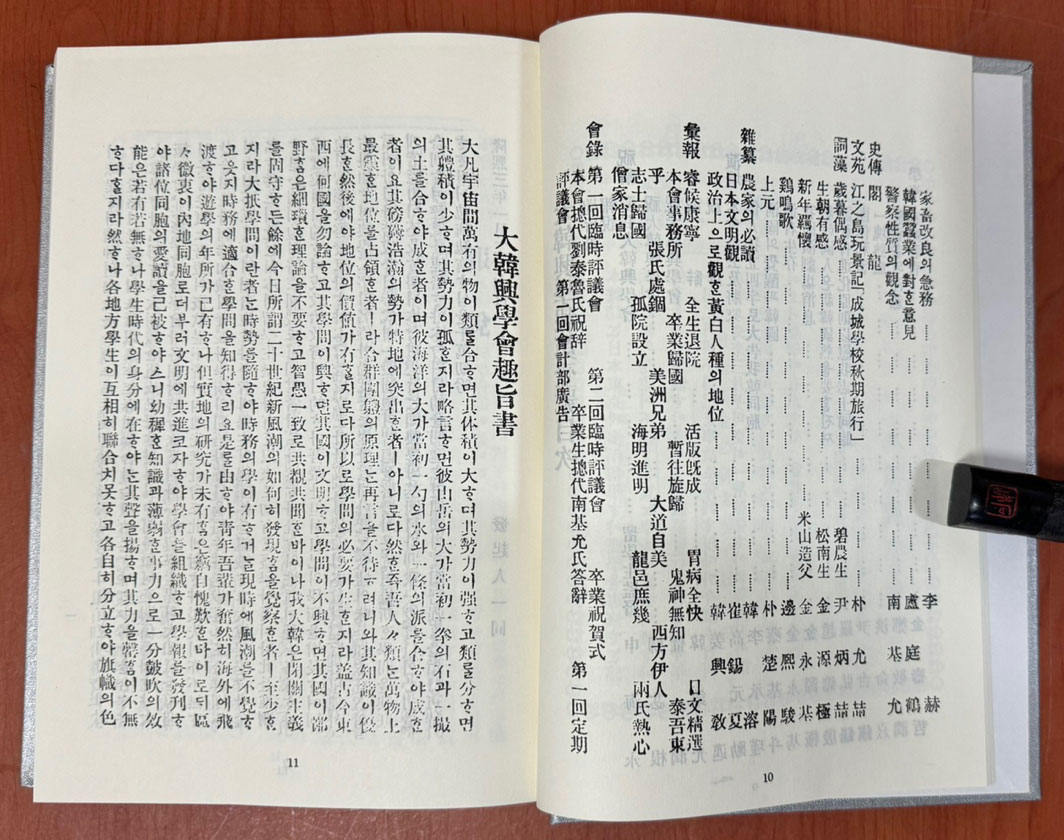 家畜改良의急務 …… 李赫
韓國蠶業에對ᄒᆞᆫ意見 …… 盧庭鶴
警察性質의觀念 …… 南基允
史傳 閣龍
文苑 江之島玩景記「成城學校秋期旅行」 朴允喆
詞藻 歲暮偶感 …… 碧農生 尹炳喆
生朝有感 …… 松南生 金源極
新年羈懷 …… 米山造父 金永基
鷄鳴歌 …… 邊熙駿
上元 …… 朴楚陽
雜纂 農家의必讀 …… 韓溶
日本文明觀 …… 崔錫夏
政治上으로觀ᄒᆞᆫ黃白人種의地位 …… 韓興敎
彙報 睿候康寧 全生退院 活版旣成 胃病全快 日文精選
本會事務所 卒業歸國 暫往旋歸 鬼神無知 泰吾東
乎 張氏處錮 美洲兄弟 大道自美 西方伊人
志士歸國 孤院設立 海明進明 龍邑庶幾 兩氏熱心
僧家消息
會錄 第一回臨時評議會 第二回臨時評議會 卒業祝賀式
本會摠代劉泰魯氏祝辞 卒業生摠代南基允氏答辭 第一回定期
評議會 第一回會計部廣告
10
大韓興學會趣旨書
大凡宇宙間萬有의物이類ᄅᆞᆯ合ᄒᆞ면其体積이大ᄒᆞ며其勢力이强ᄒᆞ고類ᄅᆞᆯ分ᄒᆞ면
其軆積이少ᄒᆞ며其勢力이孤ᄒᆞᆫ지라略言ᄒᆞ면彼山岳의大가當初一拳의石과一撮
의土를合ᄒᆞ야成ᄒᆞᆫ者이며彼海洋의大가當初一勺의水와一條의派를合ᄒᆞ야成ᄒᆞᆫ
者이요其磅礡浩瀚의勢가特地에突出ᄒᆞᆫ者ㅣ아니로다然ᄒᆞᆫ즉吾人人類ᄂᆞᆫ萬物上
最靈ᄒᆞᆫ地位를占領ᄒᆞᆫ者ㅣ라合群團軆의原理ᄂᆞᆫ再言을不待ᄒᆞ려니와其知識이優
長ᄒᆞᆫ然後에야地位의價値가有ᄒᆞᆯ지로다所以로學問의必要가生ᄒᆞᆫ지라盖古今東
西에何國을勿論ᄒᆞ고其學問이興ᄒᆞ면其國이文明ᄒᆞ고學問이不興ᄒᆞ면其國이鄙
野ᄒᆞᆷ은細瑣ᄒᆞᆫ理論을不要ᄒᆞ고智愚一致로共覩共聞ᄒᆞᄂᆞᆫ바이나我大韓은閉關主義
를固守ᄒᆞ든餘에今日所謂二十世紀新風潮의如何히發現ᄒᆞᆷ을覺察ᄒᆞᆫ者ㅣ至少ᄒᆞᆫ
지라大抵學問이란者ᄂᆞᆫ時勢를隨ᄒᆞ야時務의學이有ᄒᆞ거늘現時에風潮를不覺ᄒᆞ
고읏지時務에適合ᄒᆞᆫ學問을知得ᄒᆞ리요是로由ᄒᆞ야靑年吾輩가奮然히海外에飛
渡ᄒᆞ야遊學의年所가已有ᄒᆞ나但實地의硏究가未有ᄒᆞᆷ은竊自愧歎ᄒᆞᄂᆞᆫ바이로되區
々微衷이內地同胞로더부러文明에共進코자ᄒᆞ야學會를組織ᄒᆞ고學報를發刋ᄒᆞ
야諸位同胞의愛讀을已被ᄒᆞ얏스니幼穉ᄒᆞᆫ知識과薄弱ᄒᆞᆫ事力으로一分皷吹의效
能은若有若無ᄒᆞ나學生時代의身分에在ᄒᆞ야ᄂᆞᆫ其聲을揚ᄒᆞ며其力을罄ᄒᆞᆷ이不無
ᄒᆞ다ᄒᆞᆯ지라然ᄒᆞ나各地方學生이互相히聯合치못ᄒᆞ고各自히分立ᄒᆞ야旗幟의色
11